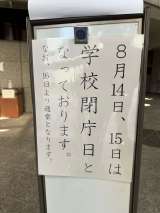 8月14日、15日は
学校閉庁日と
なっております。
なお、16日より通常となります。